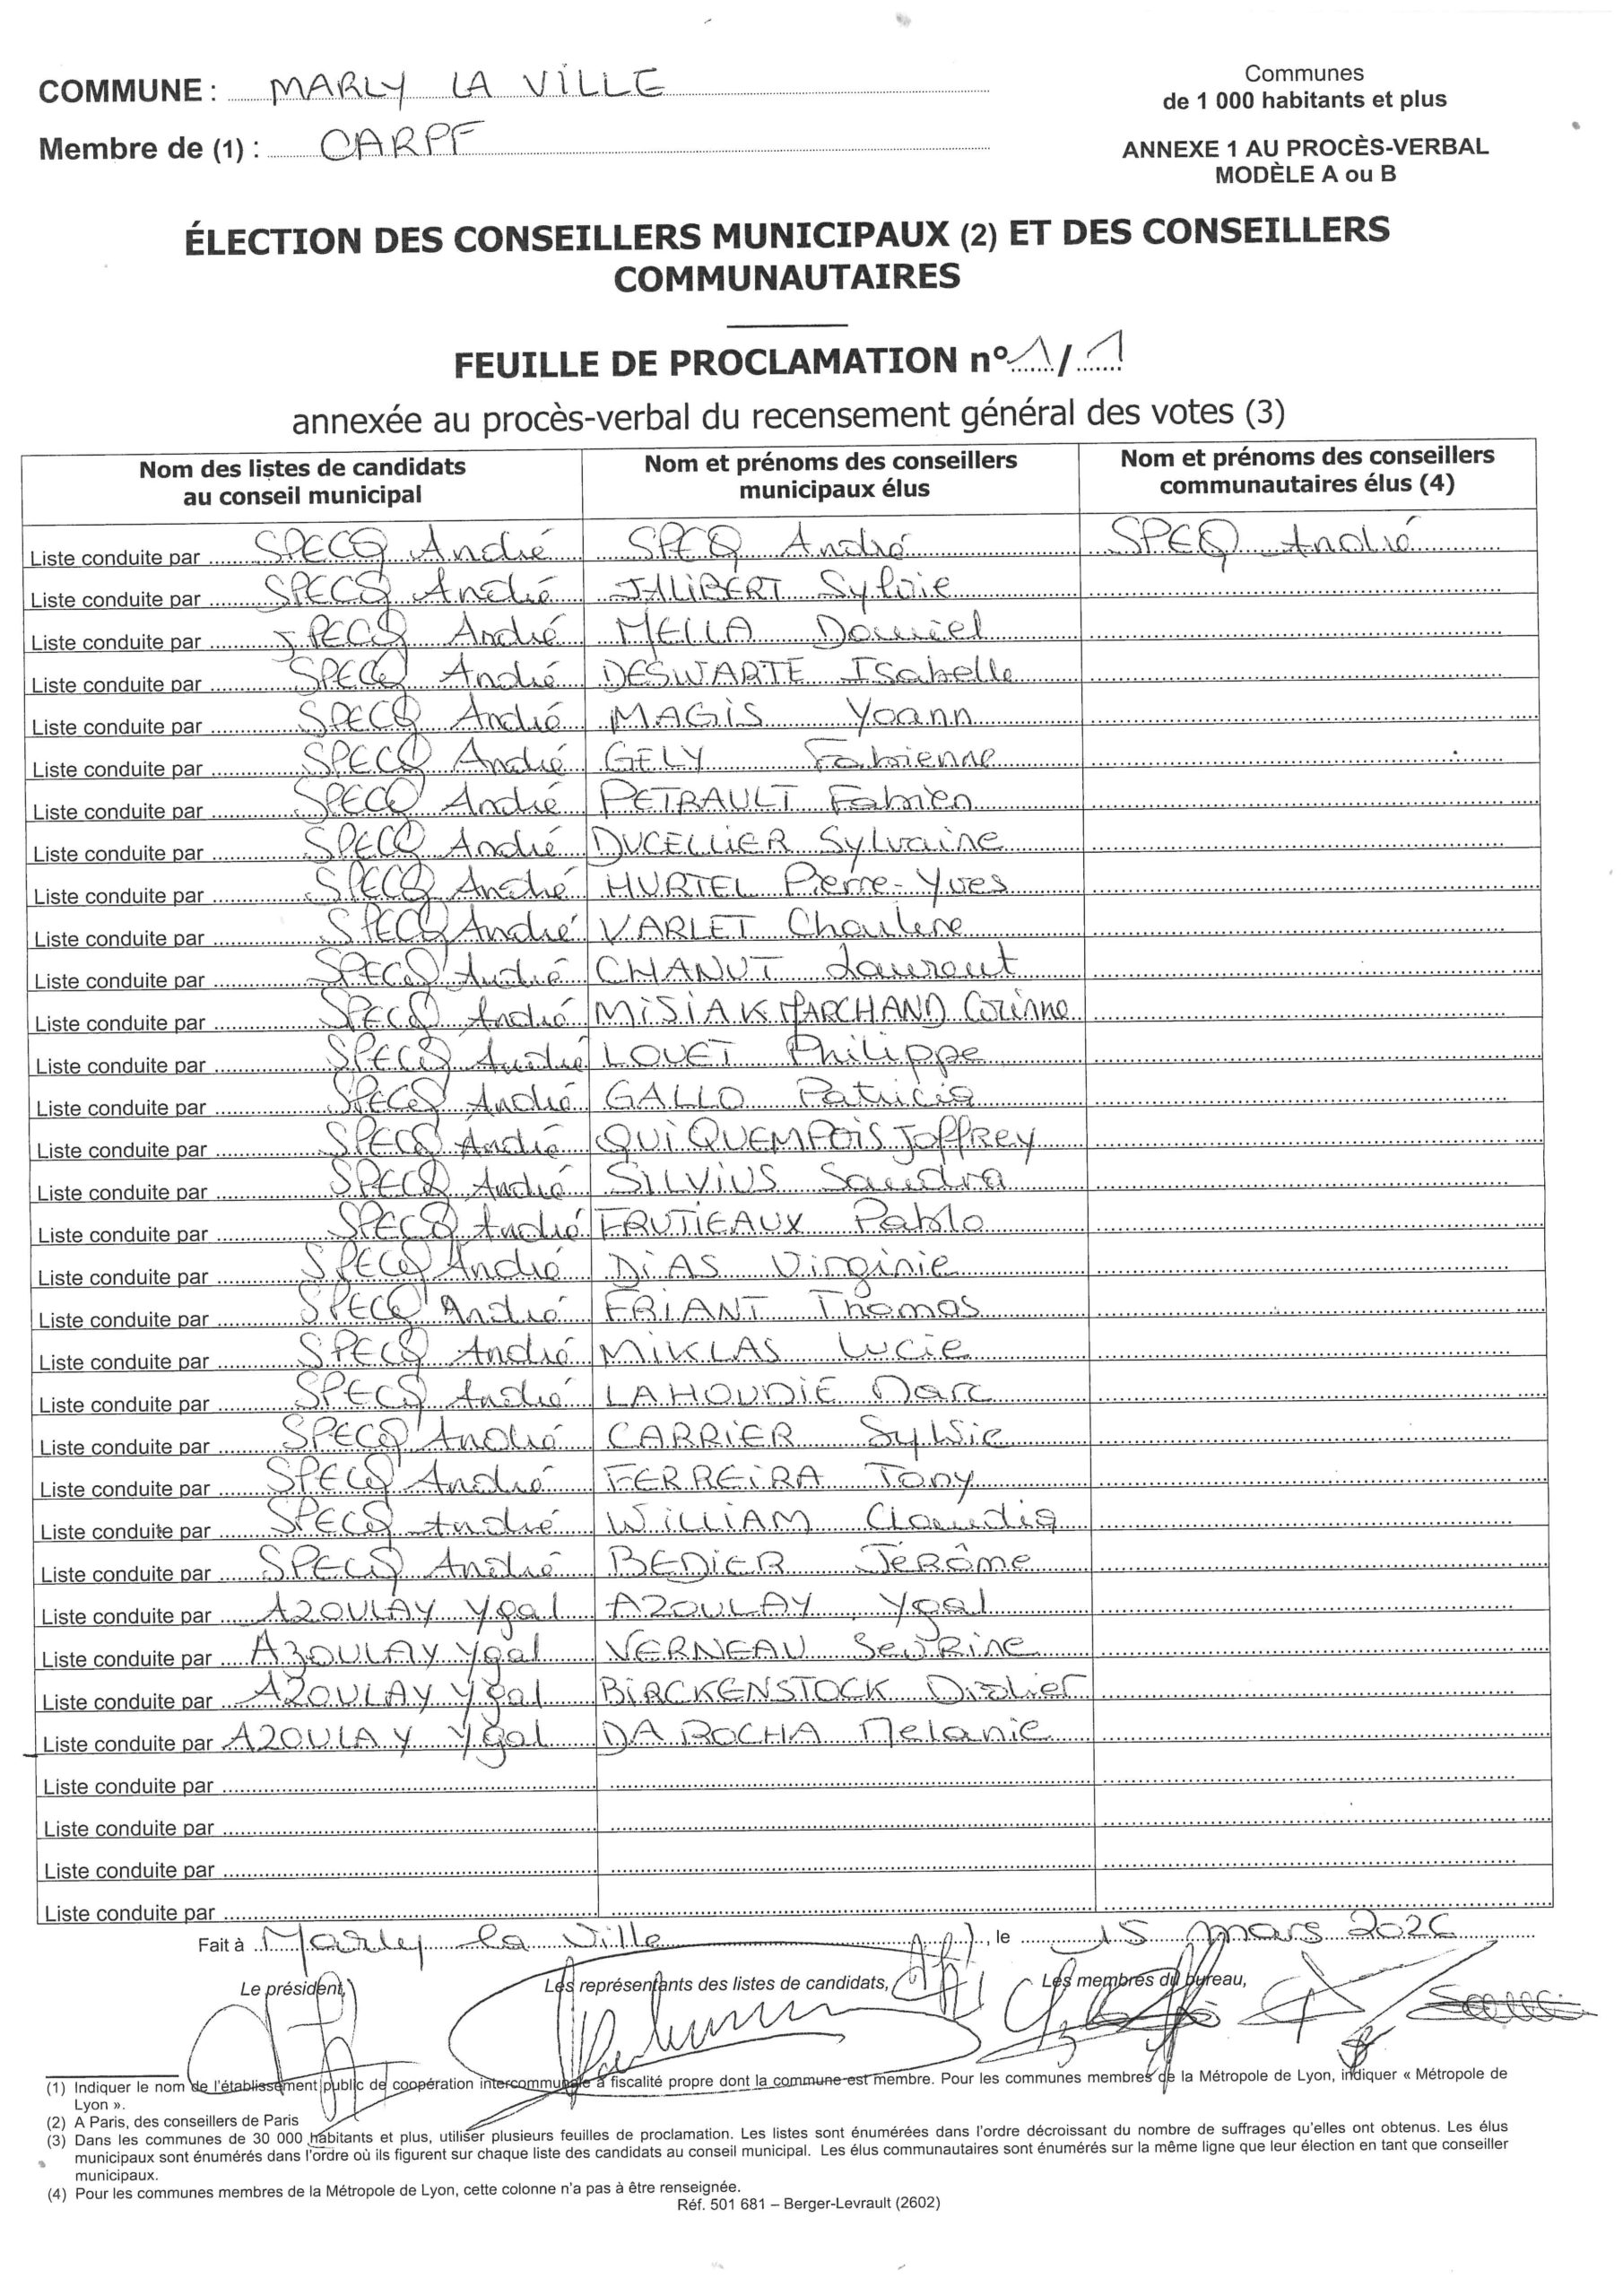 COMMUNE : MARLY LA VILLE
Membre de (1) : CARPF
Communes
de 1 000 habitants et plus
ANNEXE 1 AU PROCÈS-VERBAL
MODÈLE A ou B
ÉLECTION DES CONSEILLERS MUNICIPAUX (2) ET DES CONSEILLERS
COMMUNAUTAIRES
FEUILLE DE PROCLAMATION n° 1 / 1
annexée au procès-verbal du recensement général des votes (3)
Nom des listes de candidats au conseil municipal | Nom et prénoms des conseillers municipaux élus | Nom et prénoms des conseillers communautaires élus (4)
Liste conduite par SPECQ André | SPEQ André | SPEQ André
Liste conduite par SPECQ André | JALIBERT Sylvie
Liste conduite par SPECQ André | MELLA Daniel
Liste conduite par SPECQ André | DESWARTE Isabelle
Liste conduite par SPECQ André | MAGIS Yoann
Liste conduite par SPECQ André | GELY Fabienne
Liste conduite par SPECQ André | PETRAULT Fabien
Liste conduite par SPECQ André | DUCELLIER Sylvaine
Liste conduite par SPECQ André | HURTEL Pierre-Yves
Liste conduite par SPECQ André | VARLET Charlene
Liste conduite par SPECQ André | CHANUT Laurent
Liste conduite par SPECQ André | MISIAK MARCHAND Corinne
Liste conduite par SPECQ André | LOUET Philippe
Liste conduite par SPECQ André | GALLO Patricia
Liste conduite par SPECQ André | QUIQUEMPOIS Joffrey
Liste conduite par SPECQ André | SILVIUS Sandra
Liste conduite par SPECQ André | FRUTIEAUX Pablo
Liste conduite par SPECQ André | DIAS Virginie
Liste conduite par SPECQ André | FRIANT Thomas
Liste conduite par SPECQ André | MIKLAS Lucie
Liste conduite par SPECQ André | LAHOUDIE Marc
Liste conduite par SPECQ André | CARRIER Sylvie
Liste conduite par SPECQ André | FERREIRA Tony
Liste conduite par SPECQ André | WILLIAM Claudia
Liste conduite par SPECQ André | BEDIER Jérôme
Liste conduite par AZOULAY Ygal | AZOULAY Ygal
Liste conduite par AZOULAY Ygal | VERNEAU Sevrine
Liste conduite par AZOULAY Ygal | BIRCKENSTOCK Didier
Liste conduite par AZOULAY Ygal | DA ROCHA Melanie
Liste conduite par
Liste conduite par
Liste conduite par
Liste conduite par
Fait à Marly la Ville, le 15 mars 2026
Le président, Les représentants des listes de candidats, Les membres du bureau,
(1) Indiquer le nom de l'établissement public de coopération intercommunale à fiscalité propre dont la commune est membre. Pour les communes membres de la Métropole de Lyon, indiquer « Métropole de
Lyon ».
(2) A Paris, des conseillers de Paris
(3) Dans les communes de 30 000 habitants et plus, utiliser plusieurs feuilles de proclamation. Les listes sont énumérées dans l'ordre décroissant du nombre de suffrages qu'elles ont obtenus. Les élus
municipaux sont énumérés dans l'ordre où ils figurent sur chaque liste des candidats au conseil municipal. Les élus communautaires sont énumérés sur la même ligne que leur élection en tant que conseiller
municipaux.
(4) Pour les communes membres de la Métropole de Lyon, cette colonne n'a pas à être renseignée.
Réf. 501 681 – Berger-Levrault (2602)